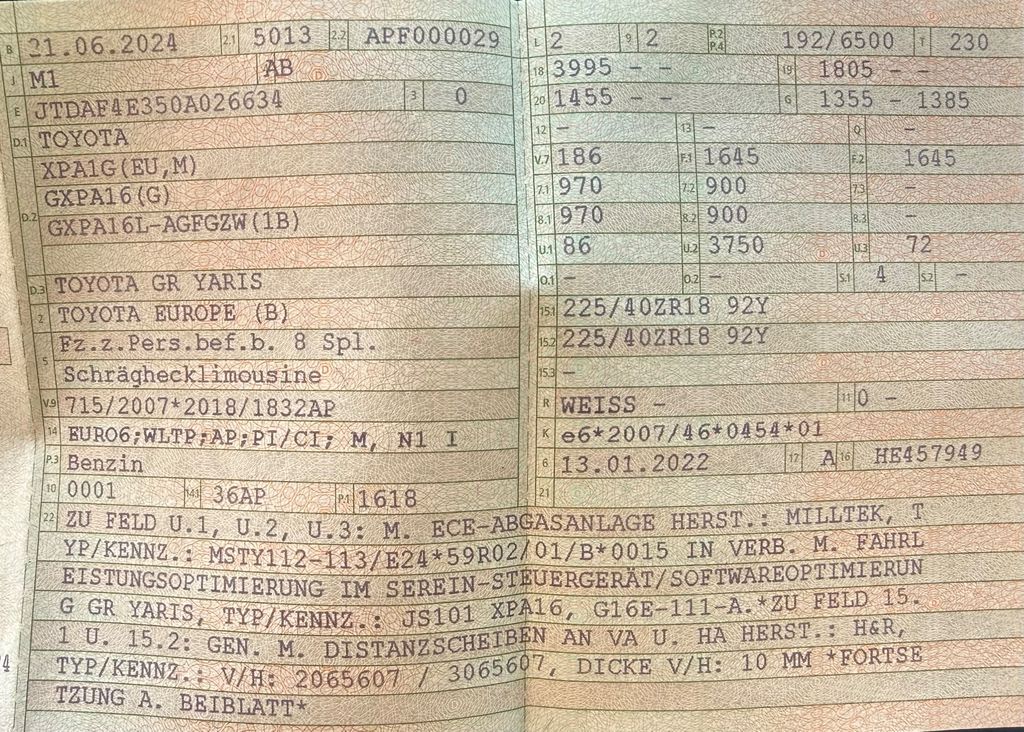 B 21.06.2024 2.1 5013 2.2 APF000029
J M1 AB
E JTDAF4E350A026634 3 0
D.1 TOYOTA
XPA1G(EU,M)
D.2 GXPA16(G)
GXPA16L-AGFGZW(1B)
D.3 TOYOTA GR YARIS
2 TOYOTA EUROPE (B)
5 Fz.z.Pers.bef.b. 8 Spl.
Schräghecklimousine
V.9 715/2007*2018/1832AP
14 EURO6;WLTP;AP;PI/CI; M, N1 I
P.3 Benzin
10 0001 14.1 36AP P.1 1618
L 2 9 2 P.2 P.4 192/6500 T 230
18 3995 - - 19 1805 - -
20 1455 - - G 1355 - 1385
12 - 13 - Q -
V.7 186 F.1 1645 F.2 1645
7.1 970 7.2 900 7.3 -
8.1 970 8.2 900 8.3 -
U.1 86 U.2 3750 U.3 72
O.1 - O.2 - S.1 4 S.2 -
15.1 225/40ZR18 92Y
15.2 225/40ZR18 92Y
15.3 -
R WEISS - 11 0 -
K e6*2007/46*0454*01
6 13.01.2022 17 A 16 HE457949
21
22 ZU FELD U.1, U.2, U.3: M. ECE-ABGASANLAGE HERST.: MILLTEK, T
YP/KENNZ.: MSTY112-113/E24*59R02/01/B*0015 IN VERB. M. FAHRL
EISTUNGSOPTIMIERUNG IM SEREIN-STEUERGERÄT/SOFTWAREOPTIMIERUN
G GR YARIS, TYP/KENNZ.: JS101 XPA16, G16E-111-A.*ZU FELD 15.
1 U. 15.2: GEN. M. DISTANZSCHEIBEN AN VA U. HA HERST.: H&R,
TYP/KENNZ.: V/H: 2065607 / 3065607, DICKE V/H: 10 MM *FORTSE
TZUNG A. BEIBLATT*